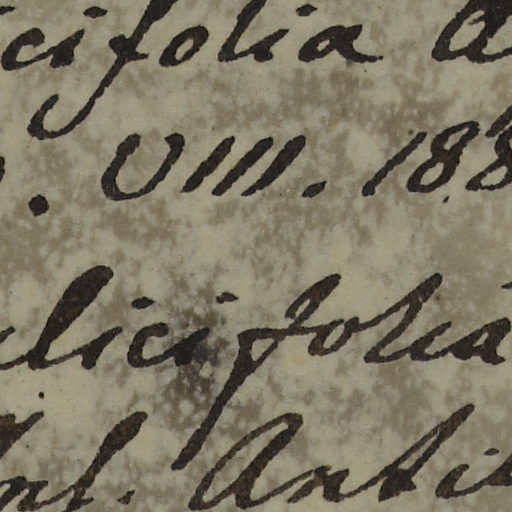 icifolia A
. VIII. 188
licifolia
Ant. Antit